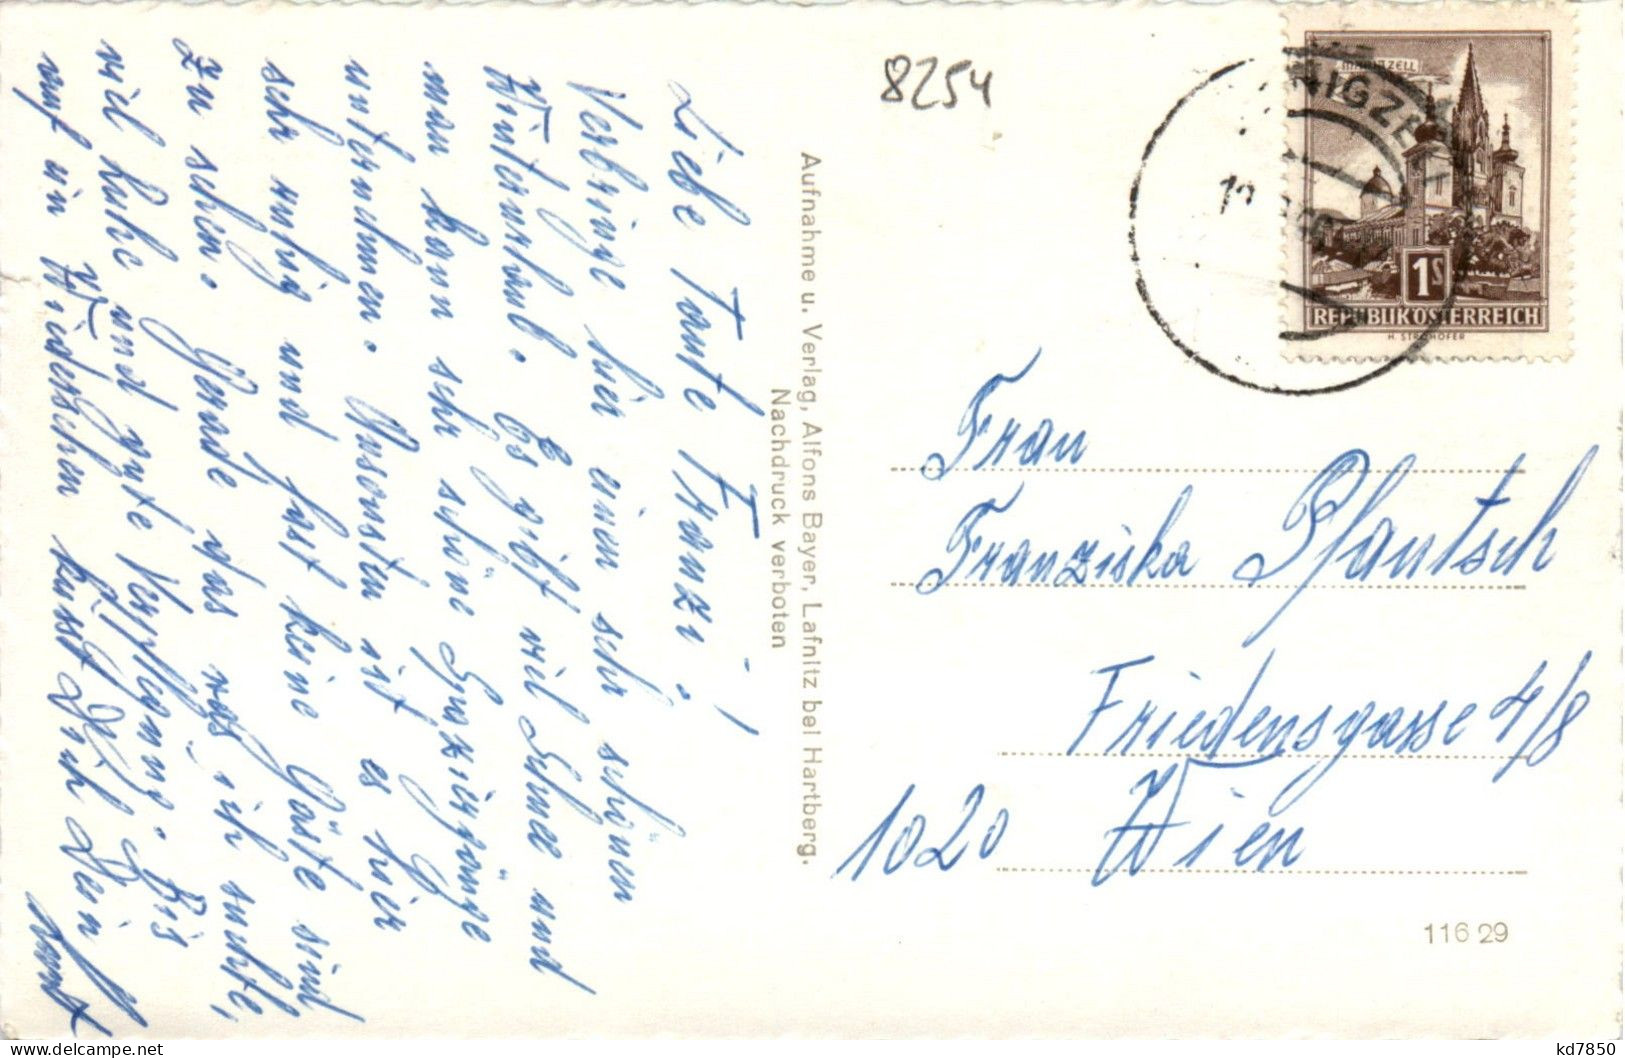 Liebe Tante Franzi!
Verbringe hier einen sehr schönen
Winterurlaub. Es gibt viel Schnee und
man kann sehr schöne Spaziergänge
unternehmen. Ansonsten ist es hier
sehr ruhig und fast keine Gäste sind
zu sehen. Gerade das was ich suchte,
viel Ruhe und gute Verpflegung. Bis
auf ein Wiedersehen küsst Dich Dein
Aufnahme u. Verlag, Alfons Bayer, Lafnitz bei Hartberg.
Nachdruck verboten
8254
MARIAZELL
NIGZE
1S
REPUBLIK ÖSTERREICH
H. STROHOFER
Frau
Franziska Pfautsch
Friedensgasse 4/8
1020 Wien
116 29
kd7850